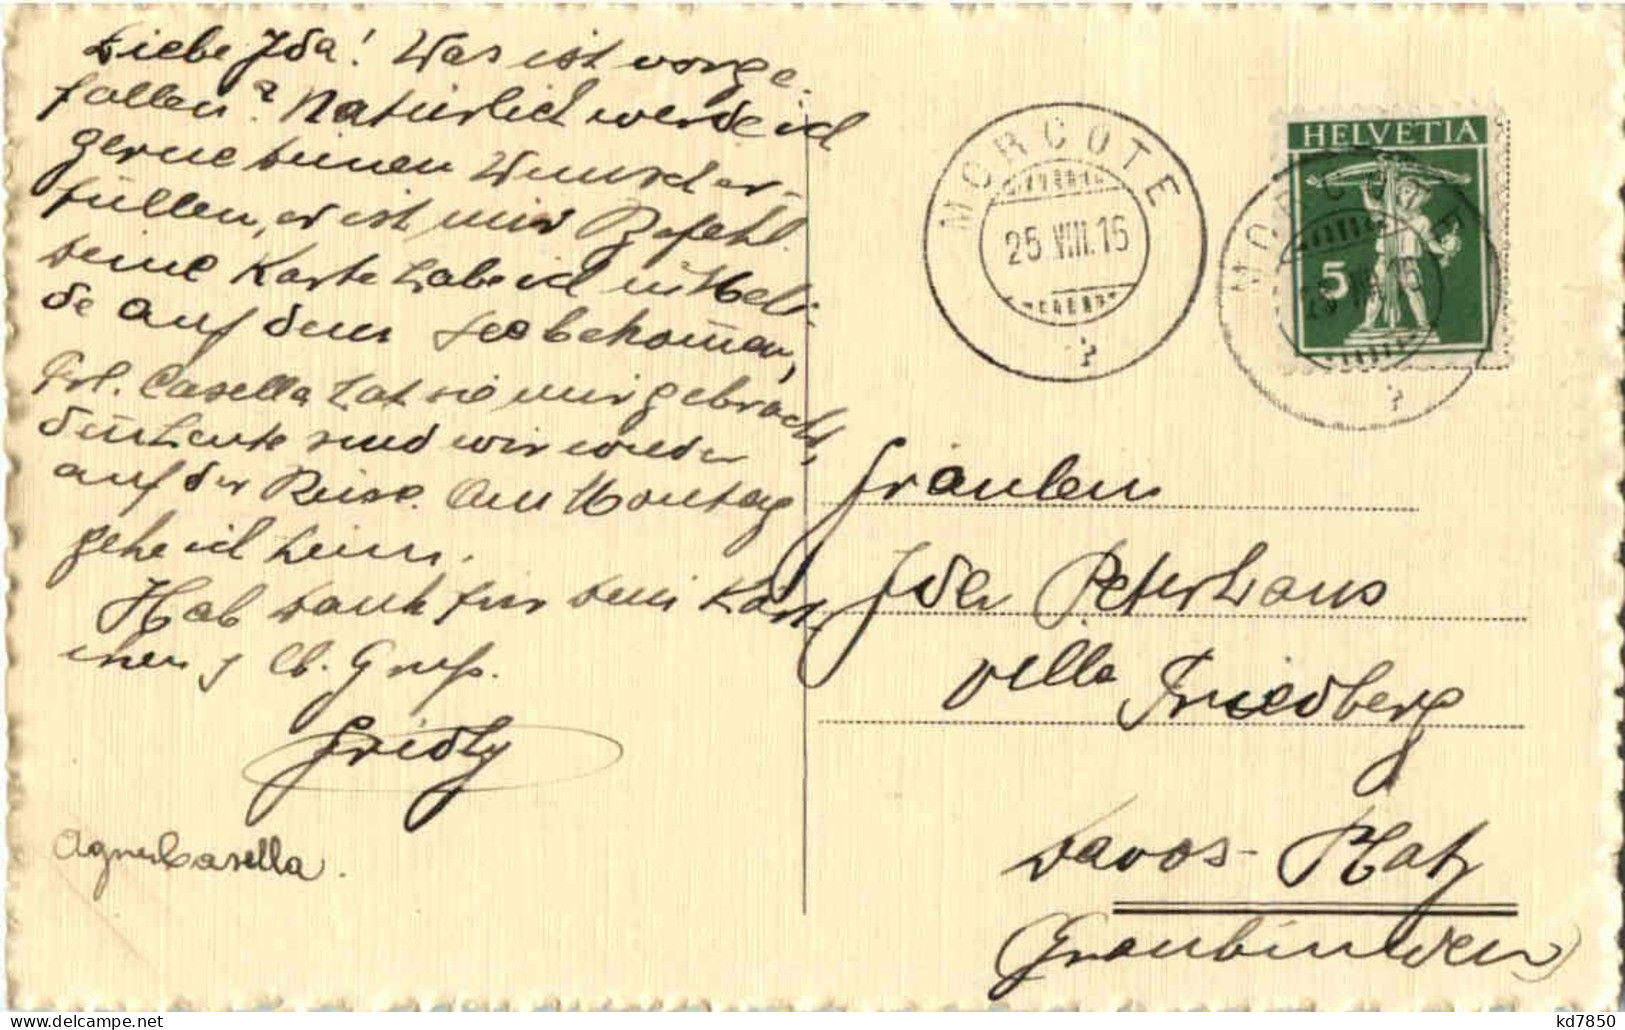 Liebe Ida! Was ist vorge-
fallen? Natürlich werde ich
gerne deinen Wunsch er-
füllen, er ist mir Befehl.
deine Karte habe ich in Meli-
de auf dem See bekom̄en,
Frl. Casella hat sie mir gebracht,
den̄ heute sind wir wieder
auf der Reise. Am Montag
gehe ich heim.
Hab dank für dein Kärt-
chen & lb. Gruß.
Fridly
Agnes Casella.
MORCOTE
25.VIII.16
HELVETIA
5
MORCOTE
Fräulein
Ida Peterhans
Villa Friedberg
Davos-Platz
(Graubünden)
kd7850